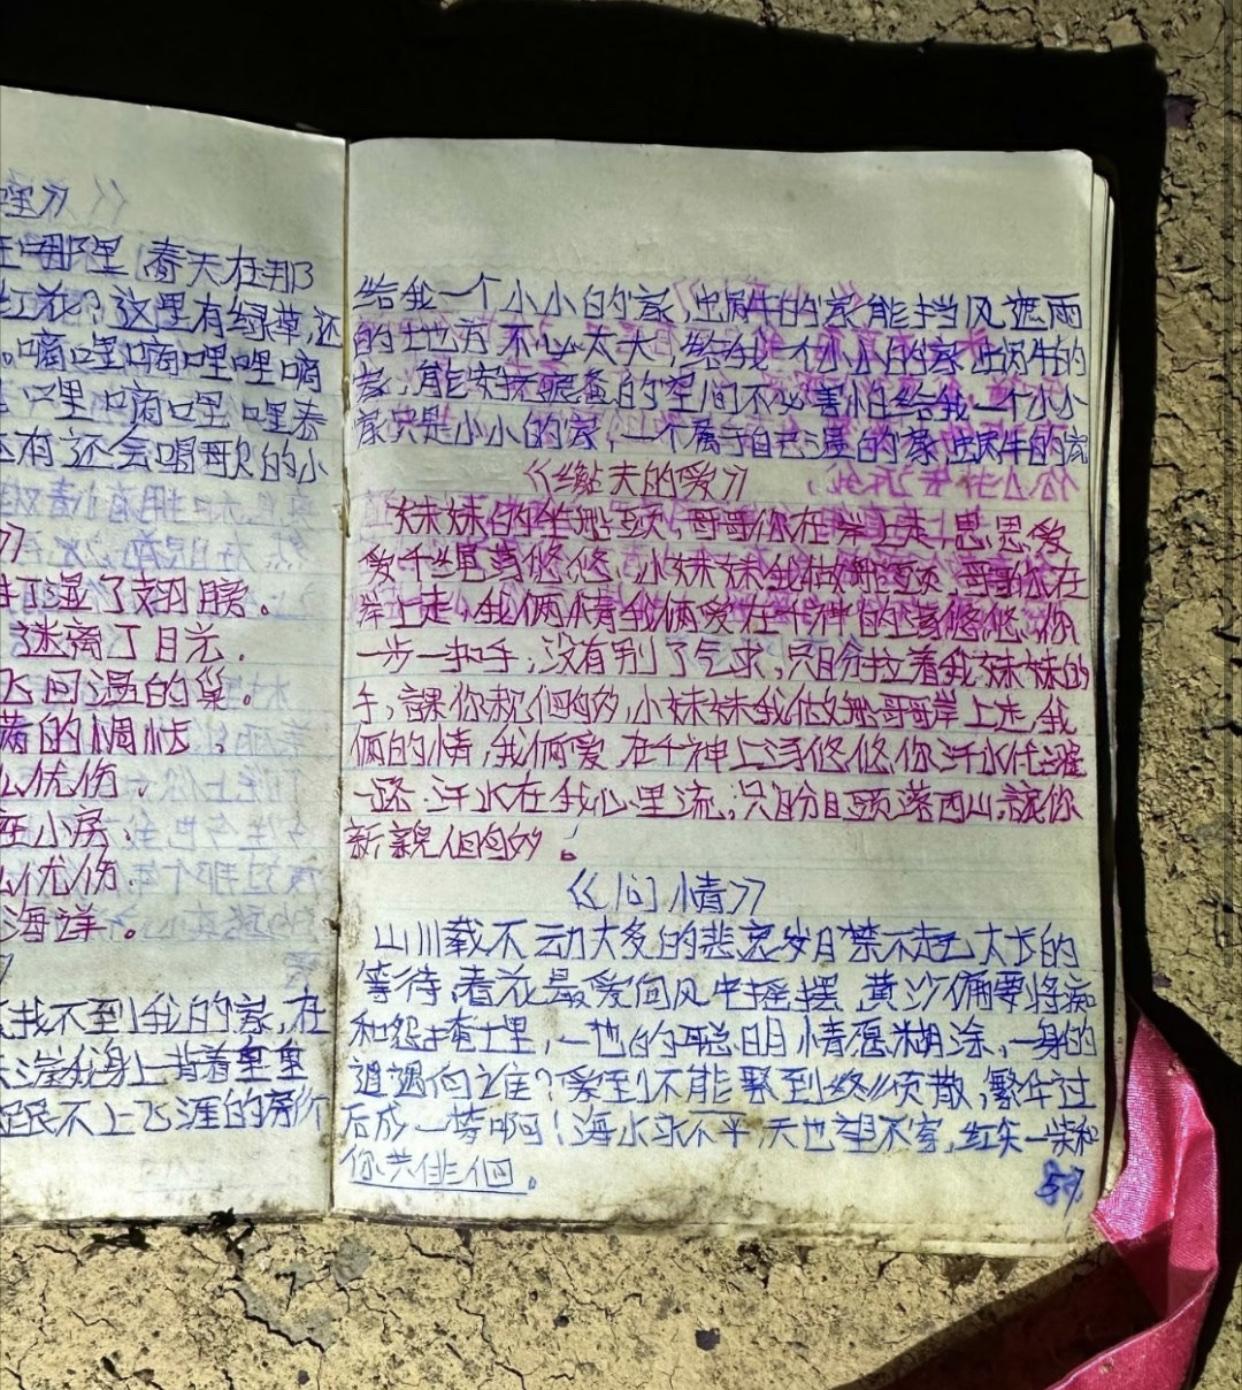 哩》
在哪里春天在那
红花?这里有绿草,还
。嘀哩嘀哩哩嘀
哩嘀哩哩春
还有还会唱歌的小
》
打湿了翅膀。
迷离了目光.
飞回温的巢。
满的惆怅,
么优伤.
在小房.
么优伤.
海洋。
找不到我的家,在
我身上背着重重
跟不上飞涯的
给我一个小小的家,蜗牛的家能挡风遮雨
的地方不必太大,给我一个小小的家蜗牛的
家,能安疲惫的空间不必害怕给我一个小小
家只是小小的家,一个属于自己温的家蜗牛的家
《纤夫的爱》
妹妹的坐船头,哥哥你在岸上走,恩恩爱
爱千绳荡悠悠,小妹妹我做船头,哥哥你在
岸上走,我俩情我俩爱在千神的荡悠悠.你
一步一扣手,没有别了乞求,只盼拉着我妹妹的
手,你亲个够,小妹妹我做船哥哥岸上走,我
俩的情,我俩爱,在千神上荡悠悠.你汗水洒
一路.汗水在我心里流,只盼日头落西山.让你
亲个够。
《问情》
山川载不动太多的悲哀岁月禁不起太长的
等待,春花最爱向风中摇摆,黄沙偏要将痴
和怨掩土里,一世的聪明情愿糊涂,一身的
逍遥向谁?爱到不能聚到终须散,繁华过
后成一梦啊!海水永不平,天也望不穿,红尘一笑和
你共徘徊。
57